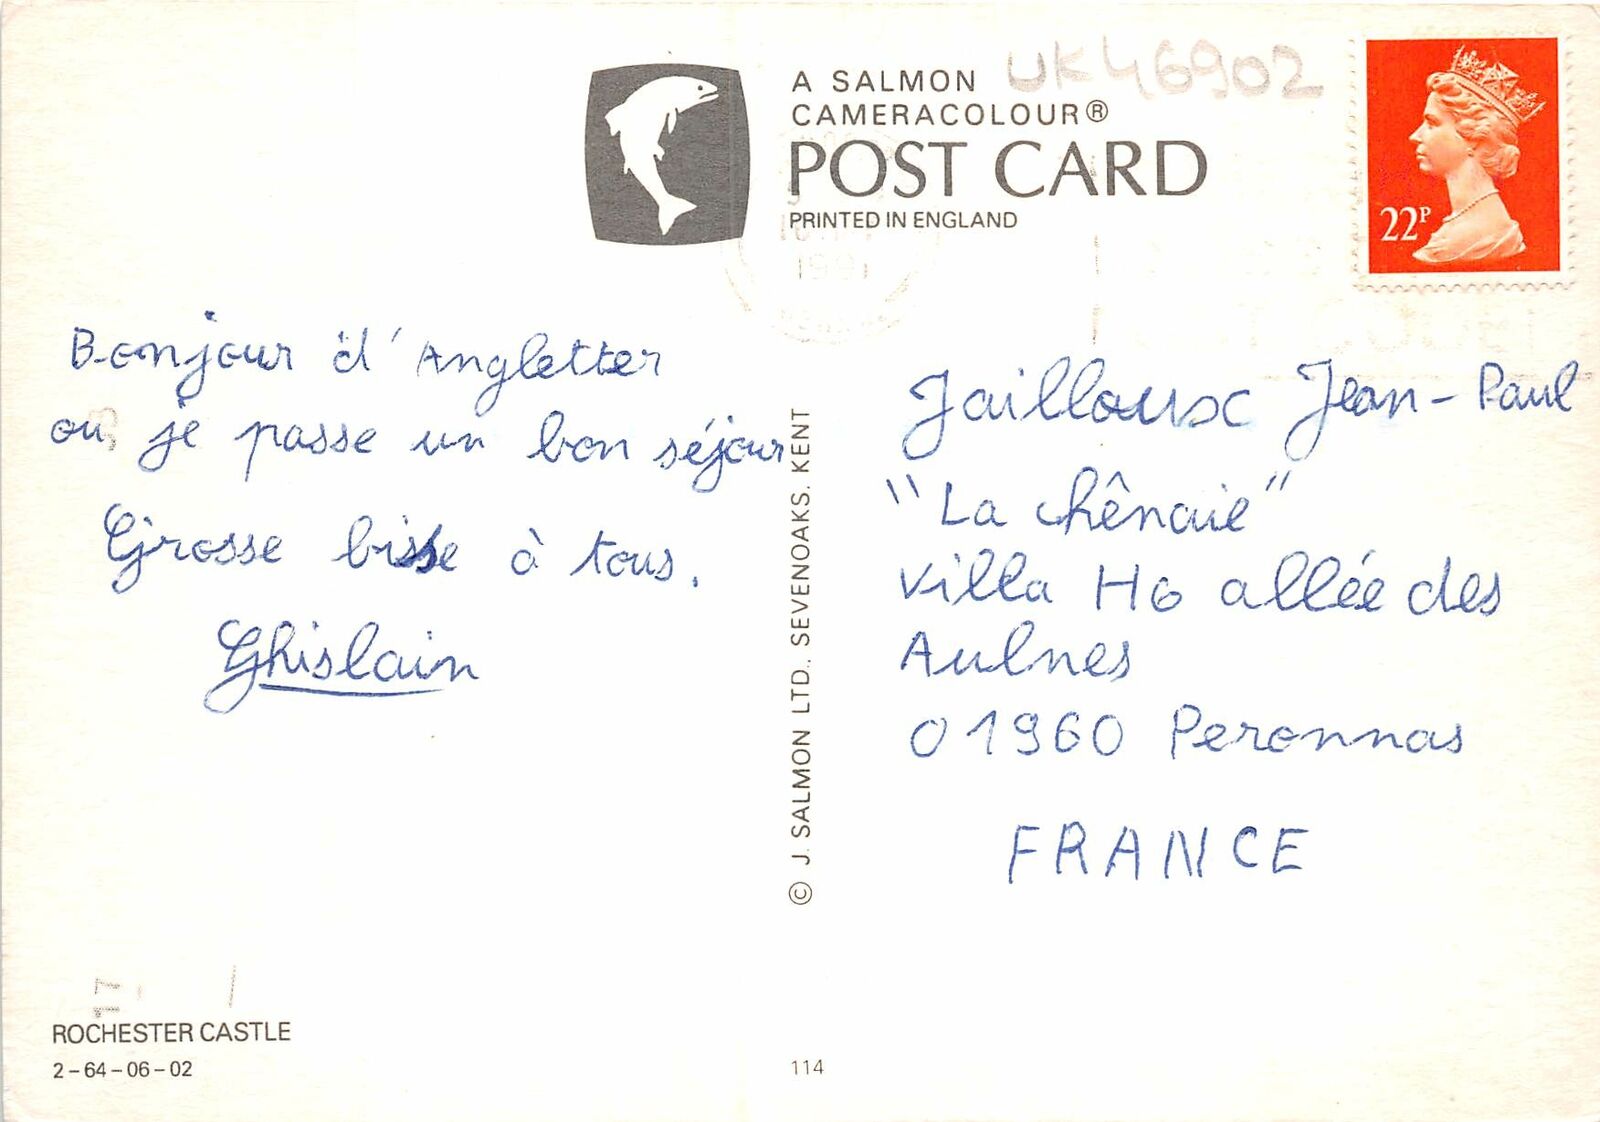 A SALMON
CAMERACOLOUR®
POST CARD
PRINTED IN ENGLAND
UK46902
22P
1991
Bonjour d'Angletter
ou je passe un bon séjour
Grosse bisse à tous.
Ghislain
© J. SALMON LTD., SEVENOAKS. KENT
Jailloux Jean-Paul
"La chênaie"
villa H6 allée des
Aulnes
01960 Peronnas
FRANCE
17
ROCHESTER CASTLE
2-64-06-02
114